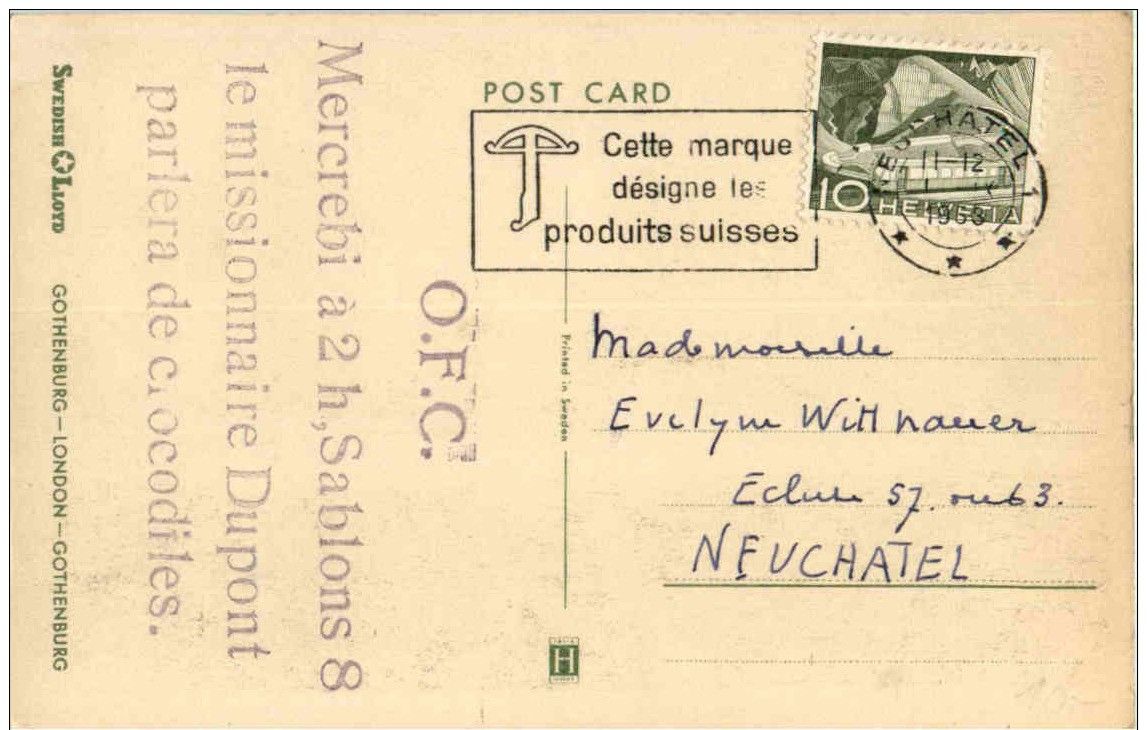 POST CARD
Cette marque
désigne les
produits suisses
NEUCHATEL 1
11-12
1953
10 HELVETIA
O.F.C.
Mercrebi à 2 h, Sablons 8
le missionnaire Dupont
parlera de crocodiles.
SWEDISH LLOYD
GOTHENBURG — LONDON — GOTHENBURG
Printed in Sweden
Mademoiselle
Evelyne Witthauer
Ecluse 57. ou 63.
NEUCHATEL
H